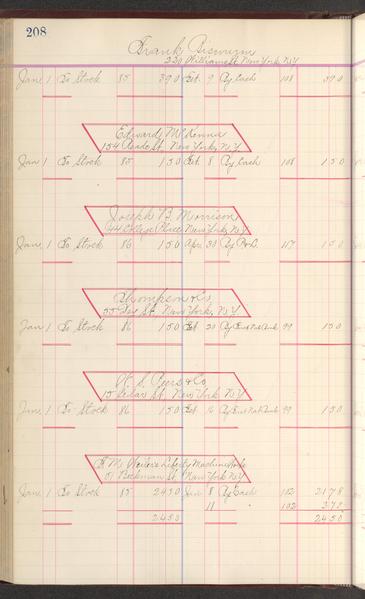 208
Frank
220 William St. New York, N.Y.
Jan 1 To Stock 85 390 Feb 9 By Cash 108 390
Edward McKenna
154 Reade St. New York, N.Y.
Jan 1 To Stock 85 150 Feb 8 By Cash 108 150
Joseph B. Morrison
44 College Place New York, N.Y.
Jan 1 To Stock 86 150 Apr 30 By 117 150
Thompson & Co.
55 Dey St. New York, N.Y.
Jan 1 To Stock 86 150 Feb 20 By 99 150
W. S. & Co.
15 Cedar St. New York N.Y.
Jan 1 To Stock 86 150 Feb 16 By 99 150
Liberty Machine
51 Beekman St. New York N.Y.
Jan 1 To Stock 85 2450 Jan 8 By Cash 102 2178
11 102 272
2450 2450